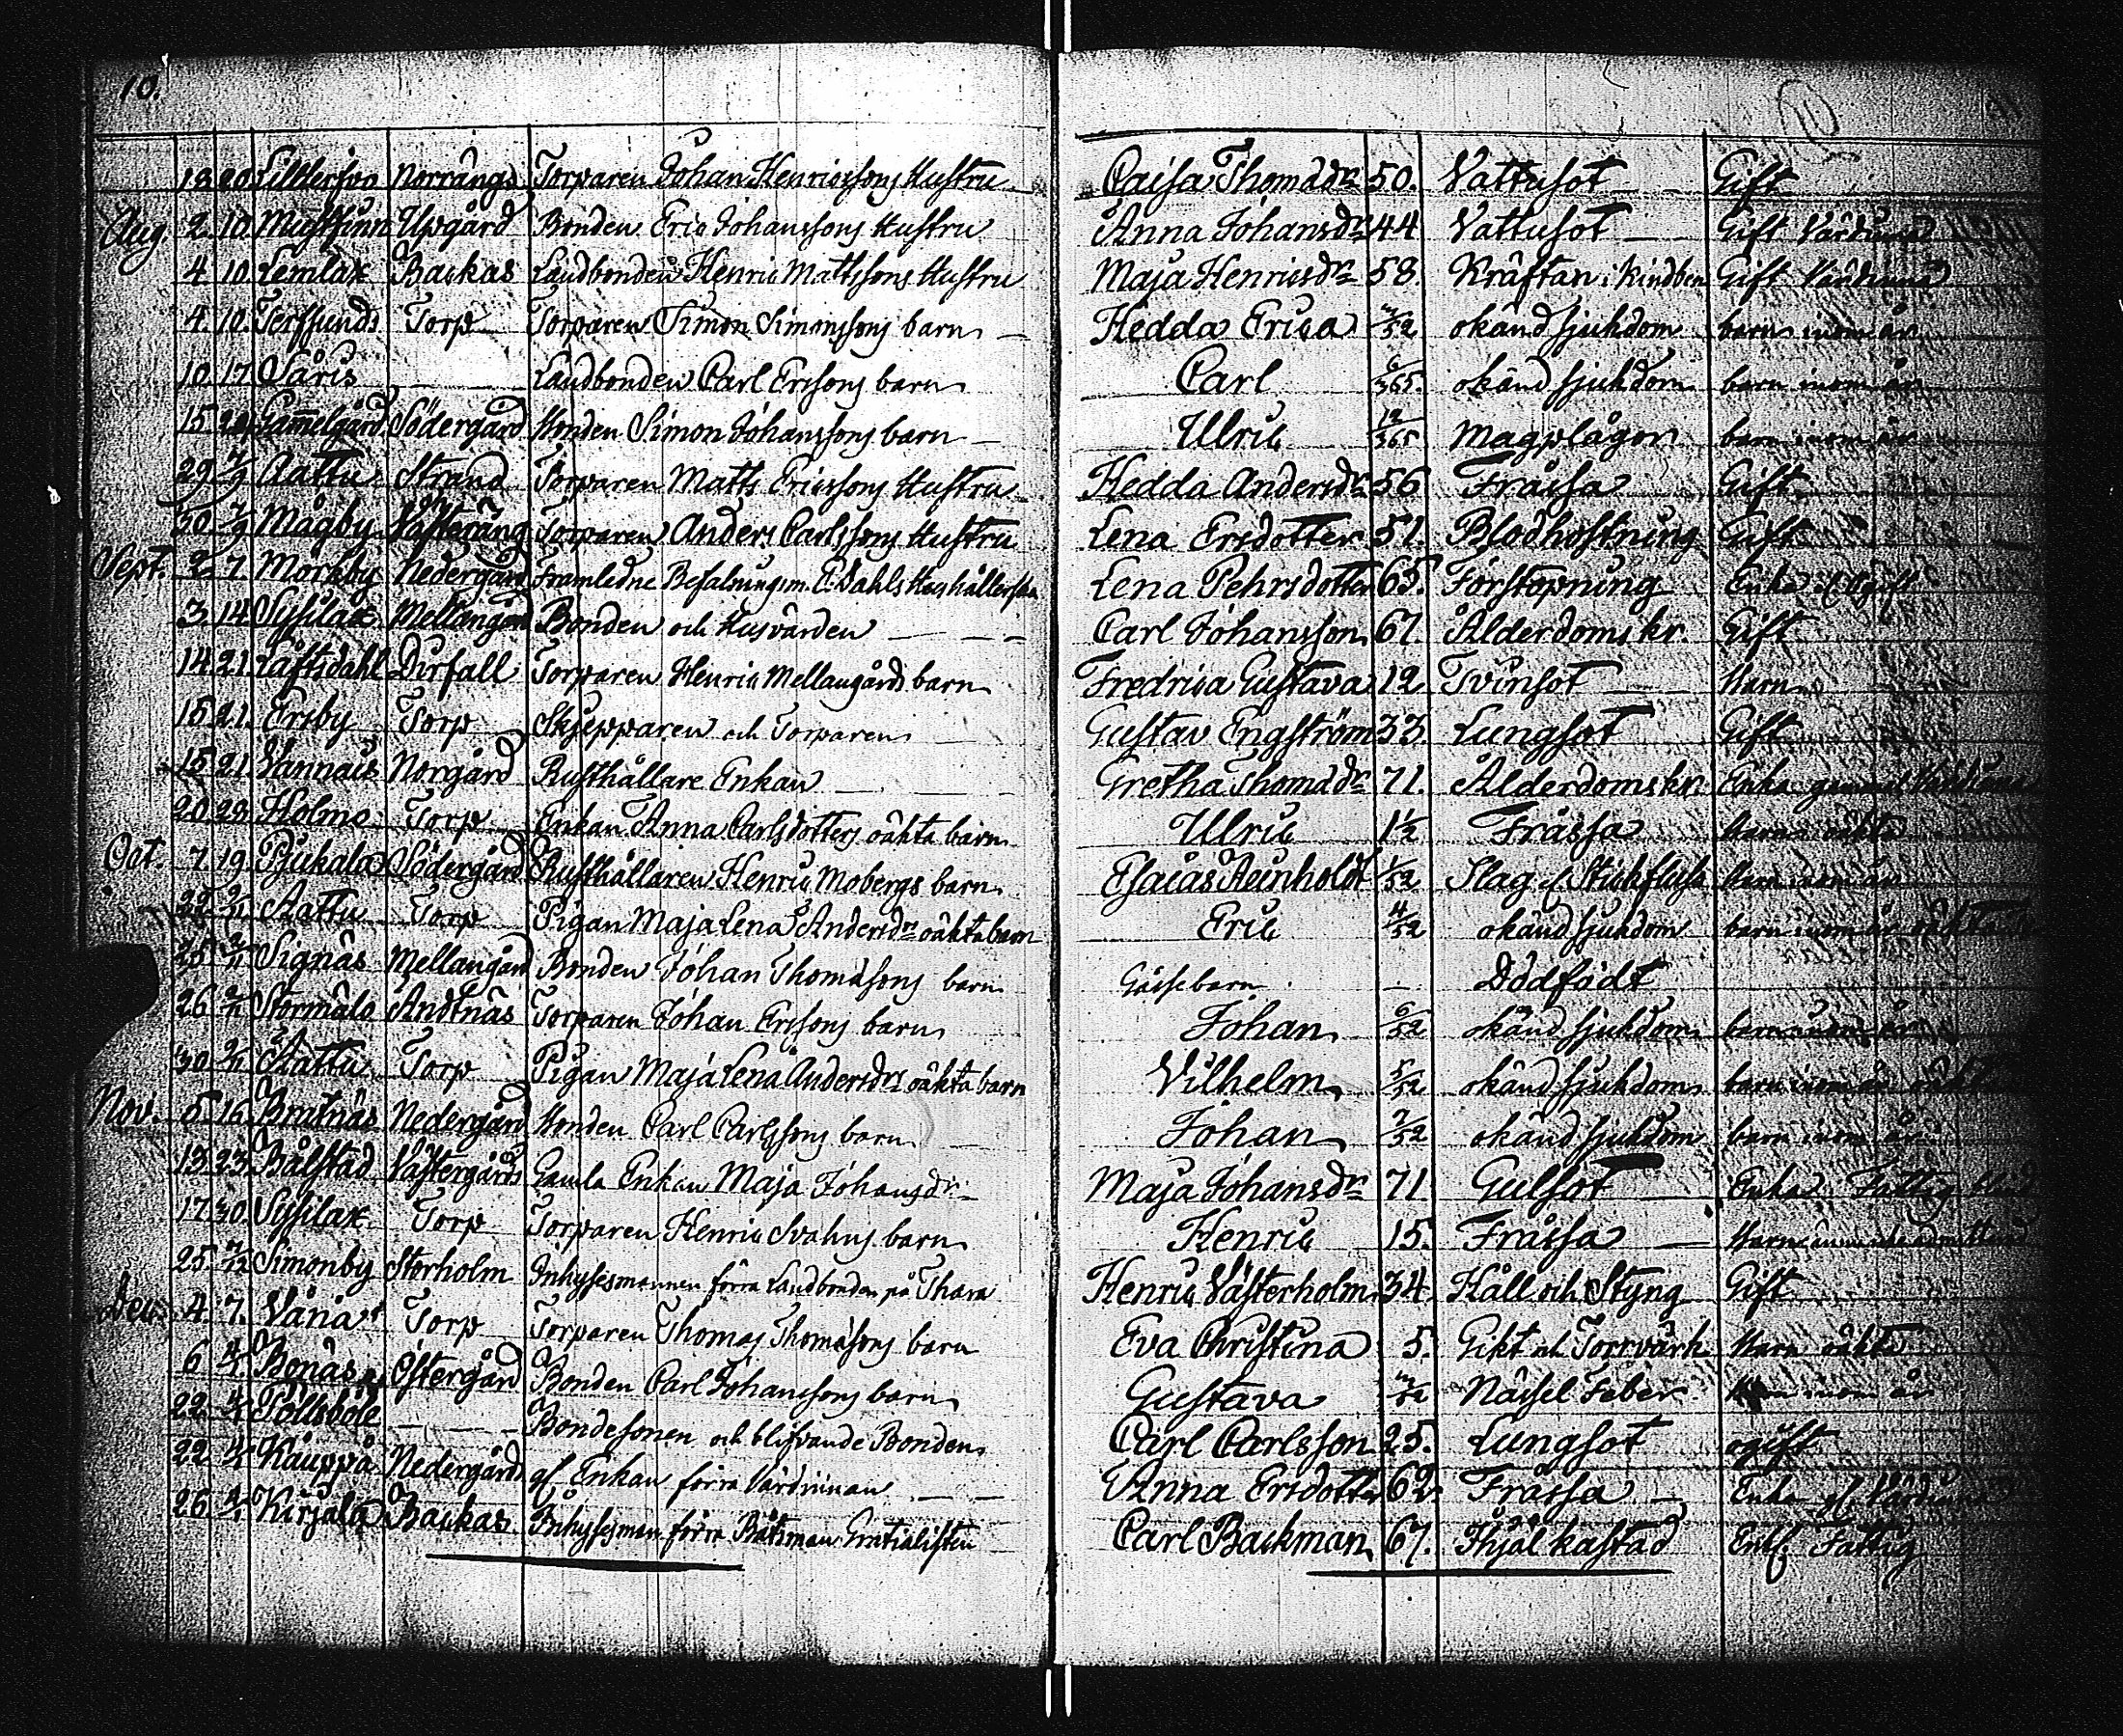 10.
18 20 Lilltersvo Norrängs Torparen Johan Henricssons Hustru Caisa Thomadr 50. Vattusot Gift
Aug. 2. 10. Mustfinn Upgård Bonden Eric Johanssons Hustru Anna Johansdr 44 Vattusot Gift Värdinna
4. 10. Lemlax Backas Landbonden Henric Mattssons Hustru Maja Henricsdr 58. Kräftan i Kindben Gift Värdinna
4. 10. Terfsunds Torp Torparen Simon Simonssons barn Hedda Erica /52 okänd sjukdom barn inom år
10. 17. Våris Landbonden Carl Ersssons barn Carl 6/365. okänd sjukdom barn inom år
15. Gam̄elgård Södergård Bonden Simon Johanssons barn Ulric 12/365 Magplågor barn inom år
29 7/9 Aattu Strand Torparen Matts Ericssons Hustru Hedda Andersdr 56 Frässa Gift
30. 7/9 Mågby Västeräng Torparen Anders Carlssons Hustru Lena Ersdotter 51. Blodhostning Gift
Sept. 2. 7. Morkby Nedergård Framledne Befalningsm. E. Dahls Hushållerska Lena Pehrsdotter 65. Förstopning Enka
3. 14. Sysilax Mellangård Bonden och Husvärden Carl Johansson 67. Ålderdoms kr. Gift
14. 21. Låftsdahl Dirfall Torparen Henric Mellangårds barn Fredrica Gustava 12 Tvinsot Barn
15. 21. Ersby Torp Skjepparen och Torparen Gustav Engström 33. Lungsot Gift
15. 21. Vännais Norgård Rusthållare Enkan Gretha Thomadr 71. Ålderdoms kr. Enka gammal Värdinna
20. 28. Holmo Torp Enkan Anna Carlsdotters oäkta barn Ulric 1½ Frässa Barn oäkta
Oct. 7. 19. Pjukala Södergård Rusthållaren Henric Mobergs barn Esaias Reinholdt 1/52 Slag el. Stickfluss Barn inom år
22. 2/11 Aattu Torp Pigan Maja Lena Andersdrs oäkta barn Eric 4/52 okänd sjukdom barn inom år oäkta
25. 2/11 Signäs Mellangård Bonden Johan Thomassons barn Gåssebarn — Dödfödt
26. 2/11 Stormälo Andtnäs Torparen Johan Ersssons barn Johan 6/52 okänd sjukdom barn inom år
30. 2/11 Aattu Torp Pigan Maja Lena Andersdrs oäkta barn Vilhelm 5/52 okänd sjukdom barn inom år oäkta
Nov. 5. 16. Bratnäs Nedergård Bonden Carl Carlssons barn Johan 2/52 okänd sjukdom barn inom år
13. 23. Bålstad Västergårds Gamla Enkan Maja Johansdr Maja Johansdr 71 Gulsot Enka. Fattig
17. 30. Sysilax Torp Torparen Henric Svahns barn Henric 15. Frässa Barn
25. 7/12 Simonby Storholm Inhysesmannen förra Landbonden på Thara Henric Västerholm 34. Håll och Styng Gift
Dec. 4. 7. Våna Torp Torparen Thomas Thomassons barn Eva Christina 5. Gikt och Torrvärk Barn äkta
6 4/1 Bonäs Östergård Bonden Carl Johanssons barn Gustava /52 Nässel Feber Barn inom år
22. 4/1 Pöllsböle Bondesonen och blifvande Bonden Carl Carlsson 25. Lungsot ogift
22. 4/1 Kauppå Nedergårds gl. Enkan förra Värdinnan Anna Ersdotter 62. Frässa Enka gl. Värdinna
26. 4/1 Kirjala Backas Inhysesman förra Båtsman Gratialisten Carl Backman 67. Ihjäl kastad Enkl. Fattig